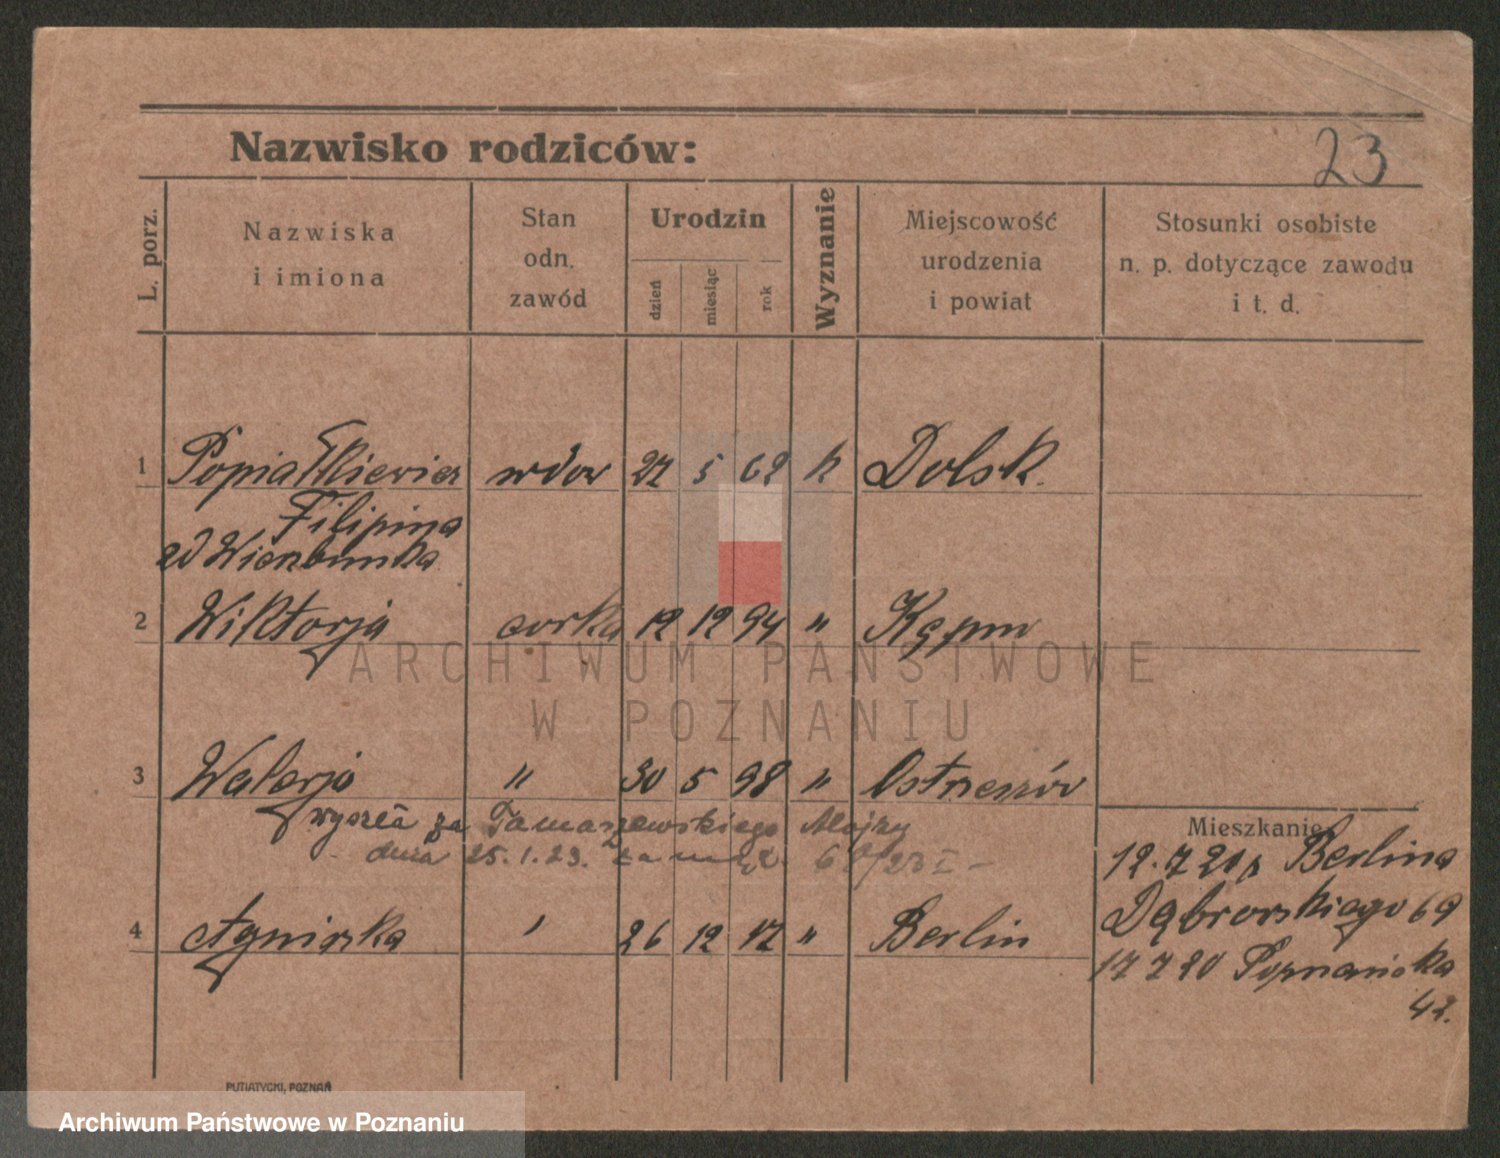 Nazwisko rodziców:
23
L. porz.
Nazwiska
i imiona
Stan
odn.
zawód
Urodzin
dzień
miesiąc
rok
Wyznanie
Miejscowość
urodzenia
i powiat
Stosunki osobiste
n. p. dotyczące zawodu
i t. d.
1 Popiałkiewicz wdow 27 5 62 k Dolsk.
Filipina
2 Wiktorja corka 12 12 94 " Kępno
ARCHIWUM PAŃSTWOWE
W POZNANIU
3 Walerja " 30 5 98 " Ostrzeszów
wyszła za Tomaszewskiego Alojzy
dnia 25.1.23. za mąż.
Mieszkanie
12.7 20 z Berlina
4 Agnieszka " 26 12 " Berlin
Dąbrowskiego 69
17 7 20 Poznańska
42.
PUTIATYCKI, POZNAŃ
Archiwum Państwowe w Poznaniu